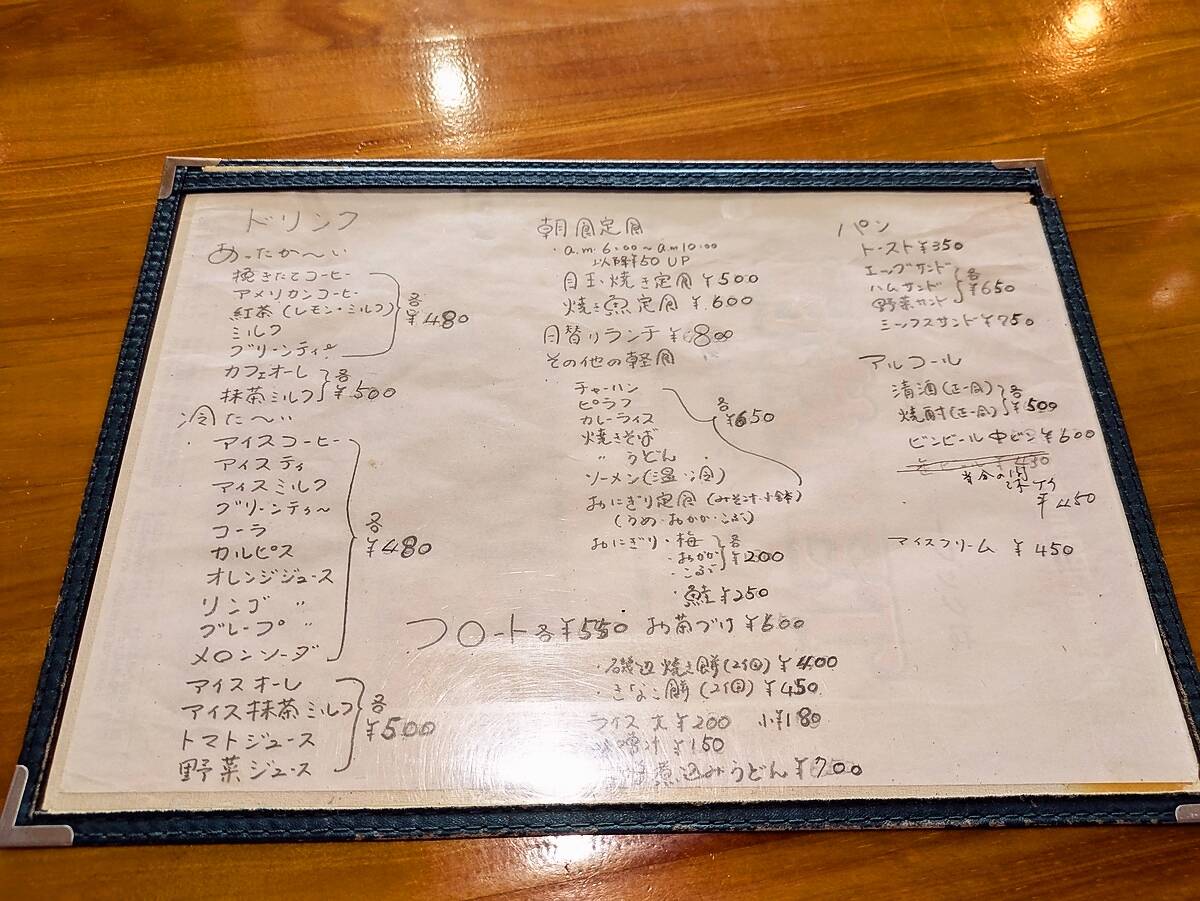 ドリンク
あったか〜い
挽きたてコーヒー
アメリカンコーヒー
紅茶(レモン・ミルク)
ミルク
グリーンティー
各
¥480
カフェオーレ
抹茶ミルク
各
¥500
冷た〜い
アイスコーヒー
アイスティ
アイスミルク
グリーンティ〜
コーラ
カルピス
オレンジジュース
リンゴ 〃
グレープ 〃
メロンソーダ
各
¥480
アイスオーレ
アイス抹茶ミルク
トマトジュース
野菜ジュース
各
¥500
フロート各¥550
朝食定食
a.m.6:00〜am10:00
以降¥50 UP
目玉焼き定食 ¥500
焼き魚定食 ¥600
日替りランチ ¥800
その他の軽食
チャーハン
ピラフ
カレーライス
焼きそば
〃 うどん
ソーメン(温・冷)
おにぎり定食(みそ汁・小鉢)
(うめ・おかか・こぶ)
各
¥650
おにぎり・梅
・おかか
・こぶ
各
¥200
・鮭 ¥250
お茶づけ ¥600
・磯辺焼き餅(2個) ¥400
・きなこ餅(2個) ¥450
ライス 大 ¥200 小¥180
味噌汁 ¥150
煮込みうどん ¥700
パン
トースト ¥350
エッグサンド
ハムサンド
野菜サンド
各
¥650
ミックスサンド ¥750
アルコール
清酒(正一合)
焼酎(正一合)
各
¥500
ビンビール 中ビン ¥600
当分の間
¥450
アイスクリーム ¥450